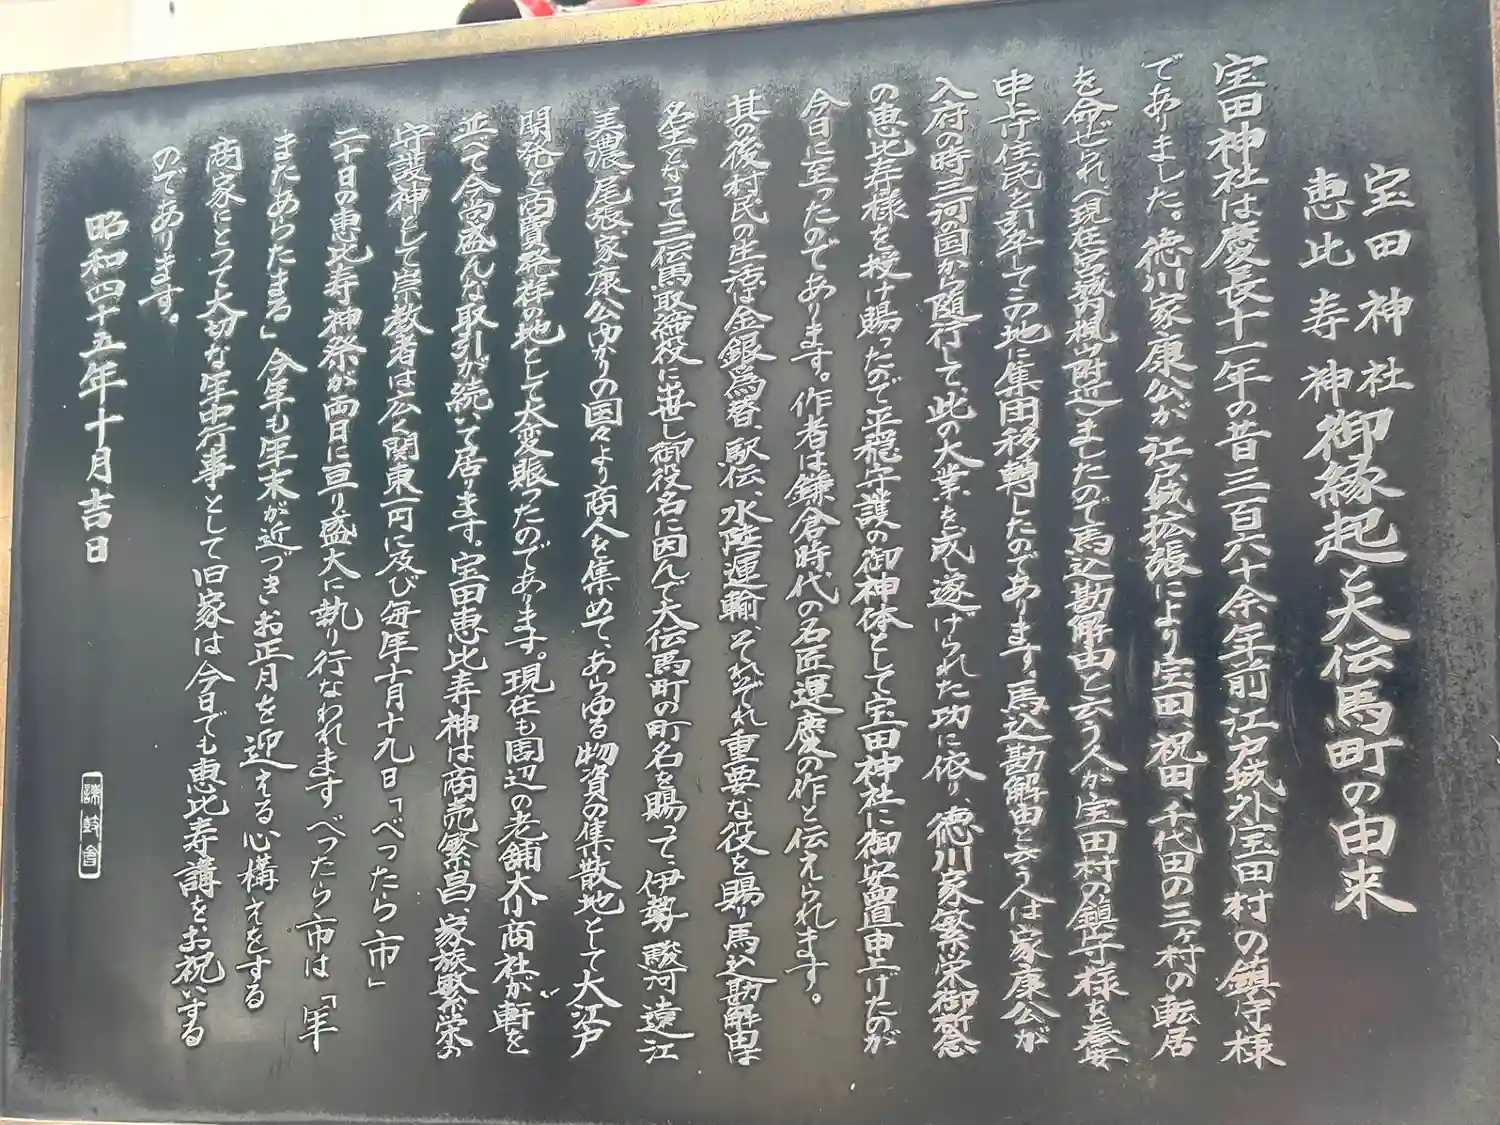 宝田神社
恵比寿神
御縁起と大伝馬町の由来
宝田神社は慶長十一年の昔三百六十余年前江戸城外宝田村の鎮守様
でありました。徳川家康公が江戸城拡張により宝田、祝田、千代田の三ヶ村の転居
を命ぜられ(現在宮城内楓山附近)ましたので馬込勘解由と云う人が宝田村の鎮守様を奉安
申上げ住民を引率してこの地に集団移転したのであります。馬込勘解由と云う人は家康公が
入府の時三河の国から随行して、此の大業を成し遂げられた功に依り、徳川家繁栄御祈念
の恵比寿様を授け賜ったので平穏守護の御神体として宝田神社に御安置申上げたのが
今日に至ったのであります。作者は鎌倉時代の名匠運慶の作と伝えられます。
其の後村民の生活は金銀為替、駅伝、水陸運輸、それぞれ重要な役を賜り馬込勘解由は
名主となって三伝馬取締役に出世し御役名に因んで大伝馬町の町名を賜って、伊勢駿河遠江
美濃尾張家康公ゆかりの国々より商人を集めて、あらゆる物資の集散地として大江戸
開発と商賣発祥の地として大変賑ったのであります。現在も周辺の老舗大小商社が軒を
並べて今尚盛んな取引が続いて居ります。宝田恵比寿神は商売繁昌、家族繁栄の
守護神として崇敬者は広く関東一円に及び毎年十月十九日「べったら市」
二十日の恵比寿神祭が両日に亘り盛大に執り行なわれますべったら市は「年
またあらたまる」今年も年末が近づきお正月を迎える心構えをする
商家にとって大切な年中行事として旧家は今日でも恵比寿講をお祝いする
のであります。
昭和四十五年十月吉日
諫鼓會